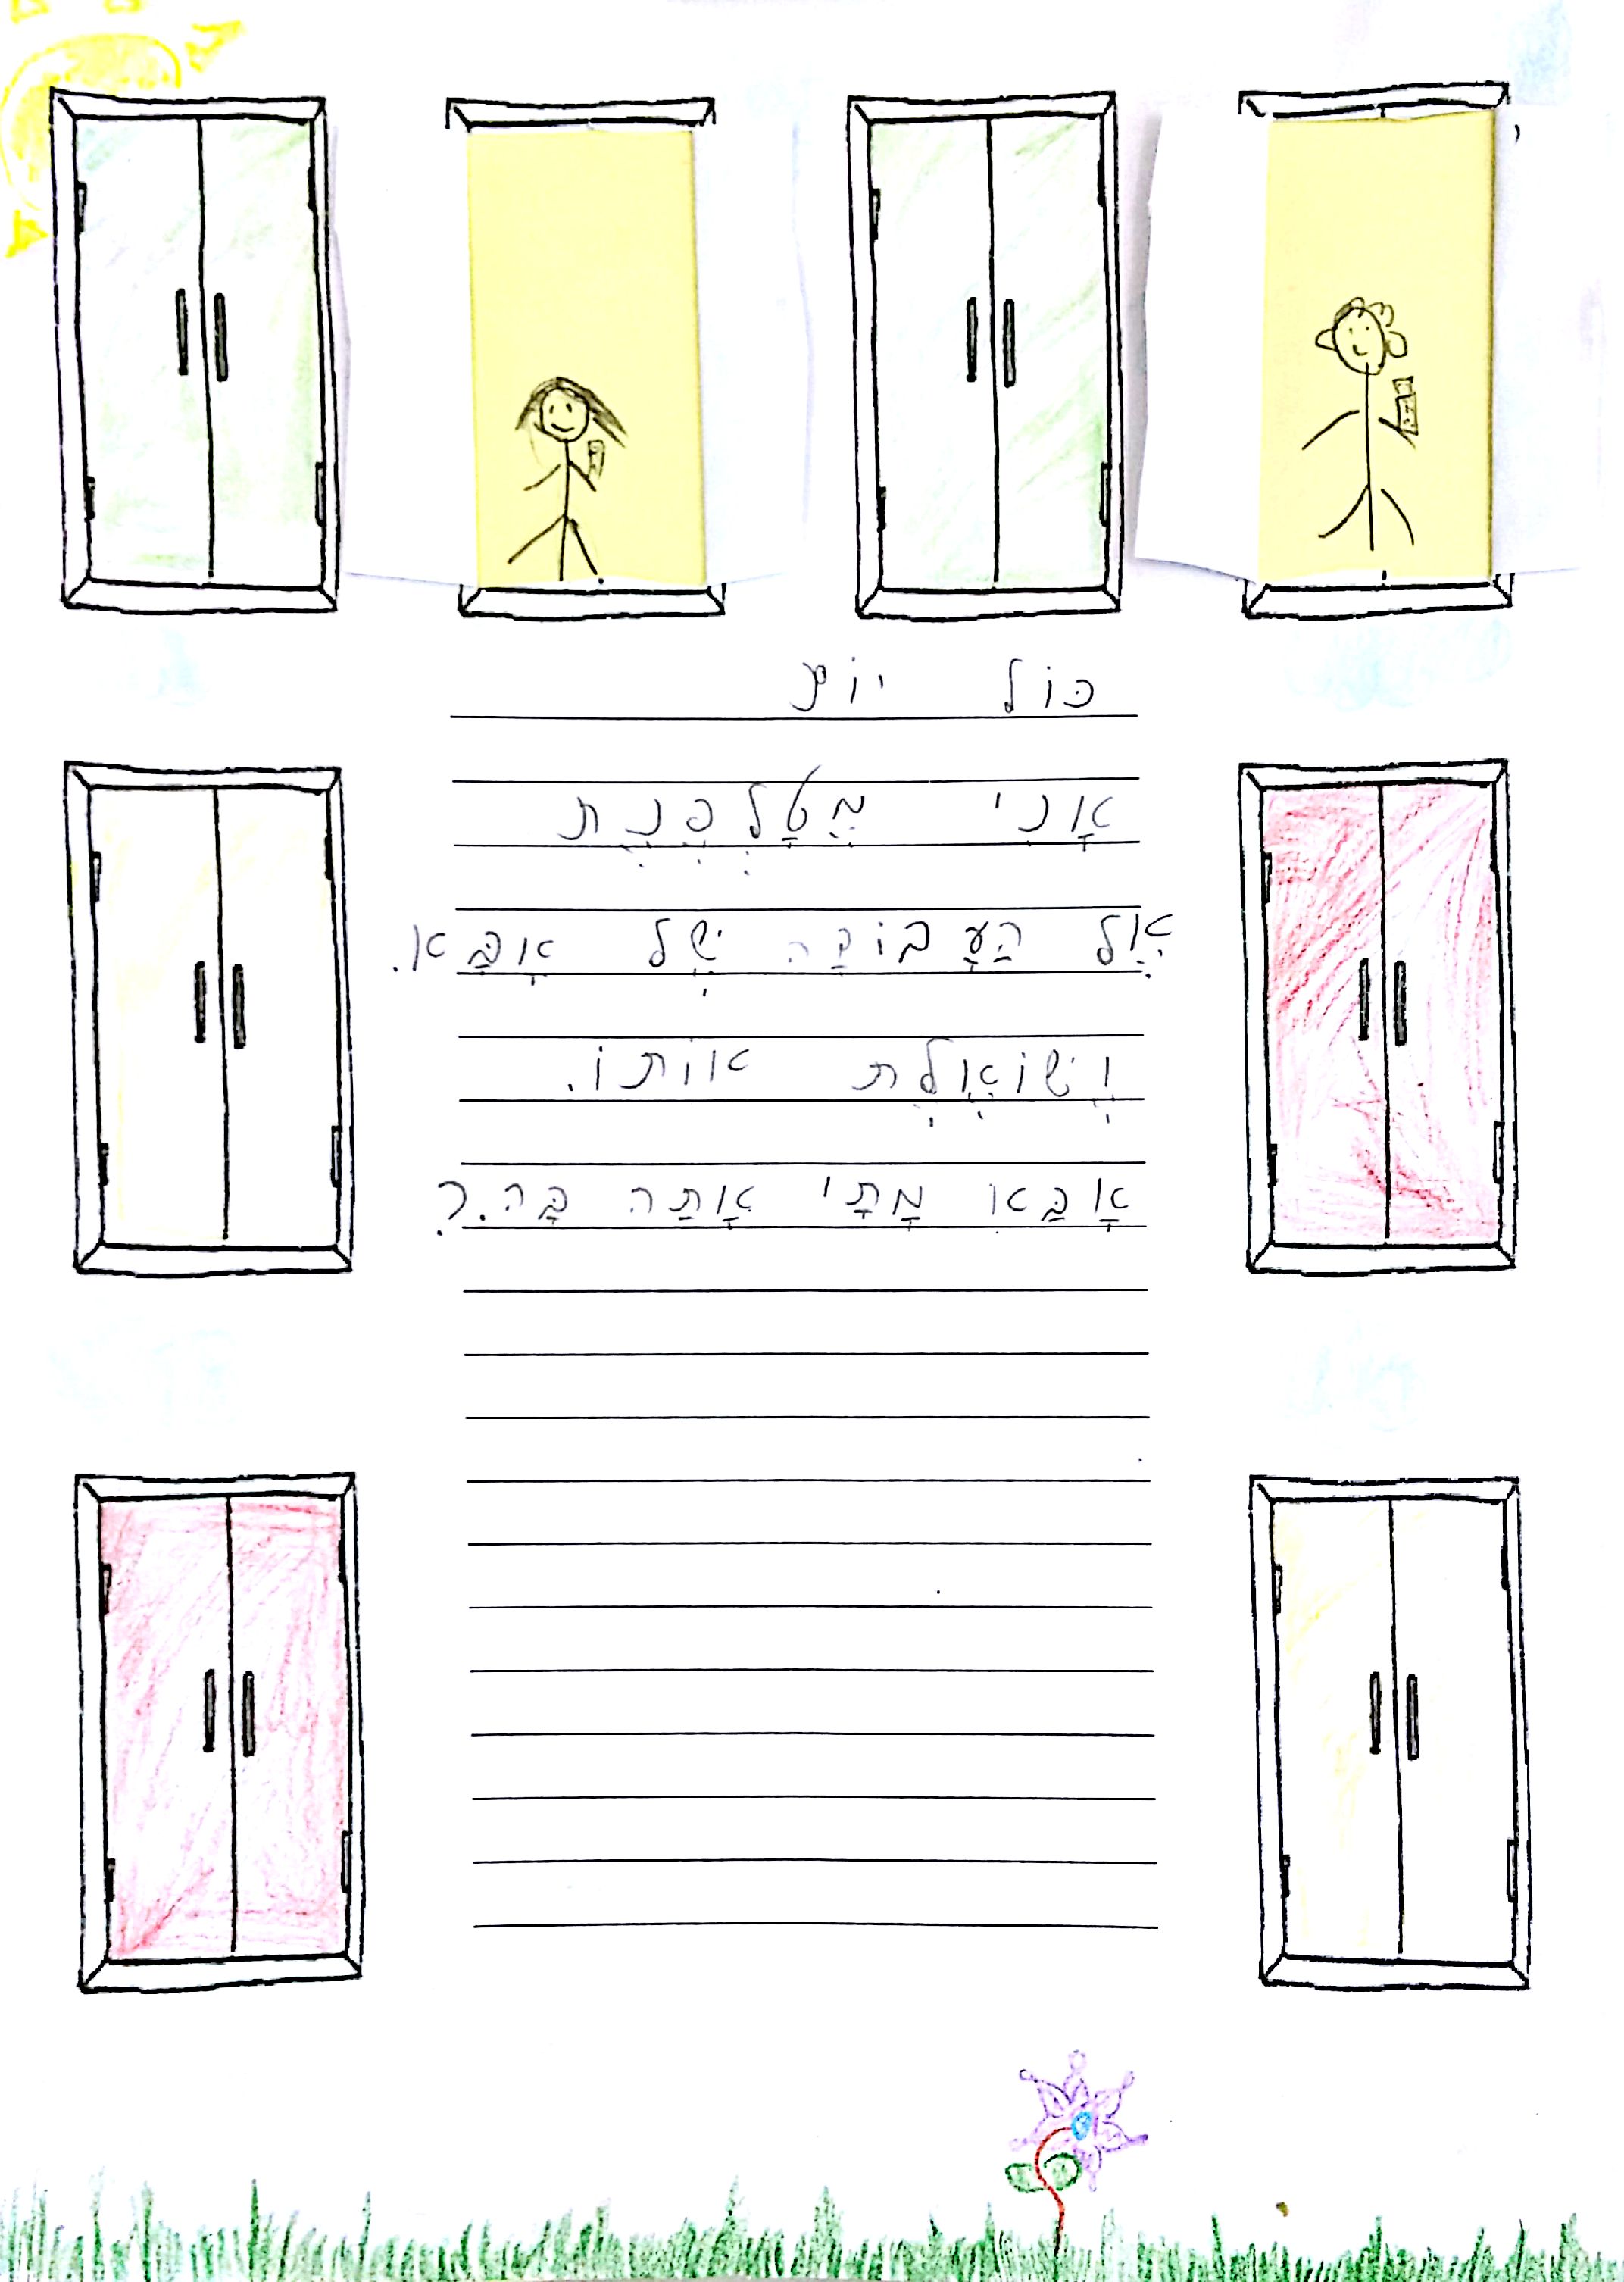 כּוֹל יוֹם
אָנִי מֶטָלְפֶנֶת
אֶל הַעָבוֹדַה שֶׁל אָבַּא.
וְשׁוֹאֶלֶת אוֹתוֹ.
אָבַּא מָתָי אָתַּה בָּה.?